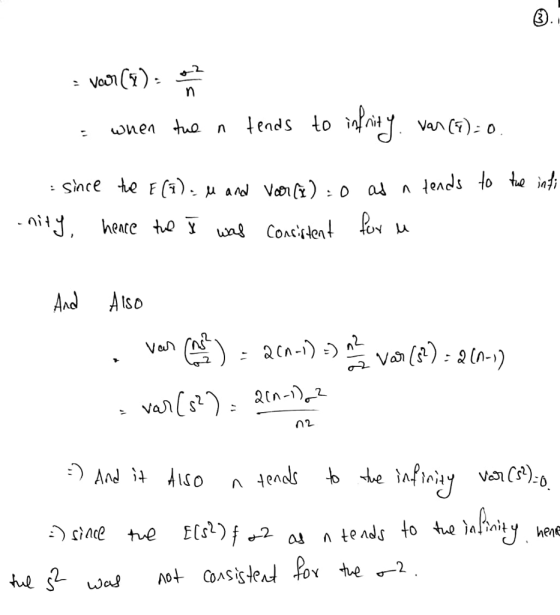 ③.
= var(x̄) = σ²/n
= when the n tends to infnity. var(x̄)=0.
: since the E(x̄) = μ and Var(x̄) = 0 as n tends to the infi
-nity, hence the x̄ was consistent for μ
And Also
. Var (ns²/σ²) = 2(n-1) => n²/σ² Var(s²) = 2(n-1)
= var(s²) = 2(n-1)σ²/n2
=) And it Also n tends to the infinity var(s²)=0.
=) since the E(s²) ≠ σ2 as n tends to the infinity. hene
the s² was not consistent for the σ2.